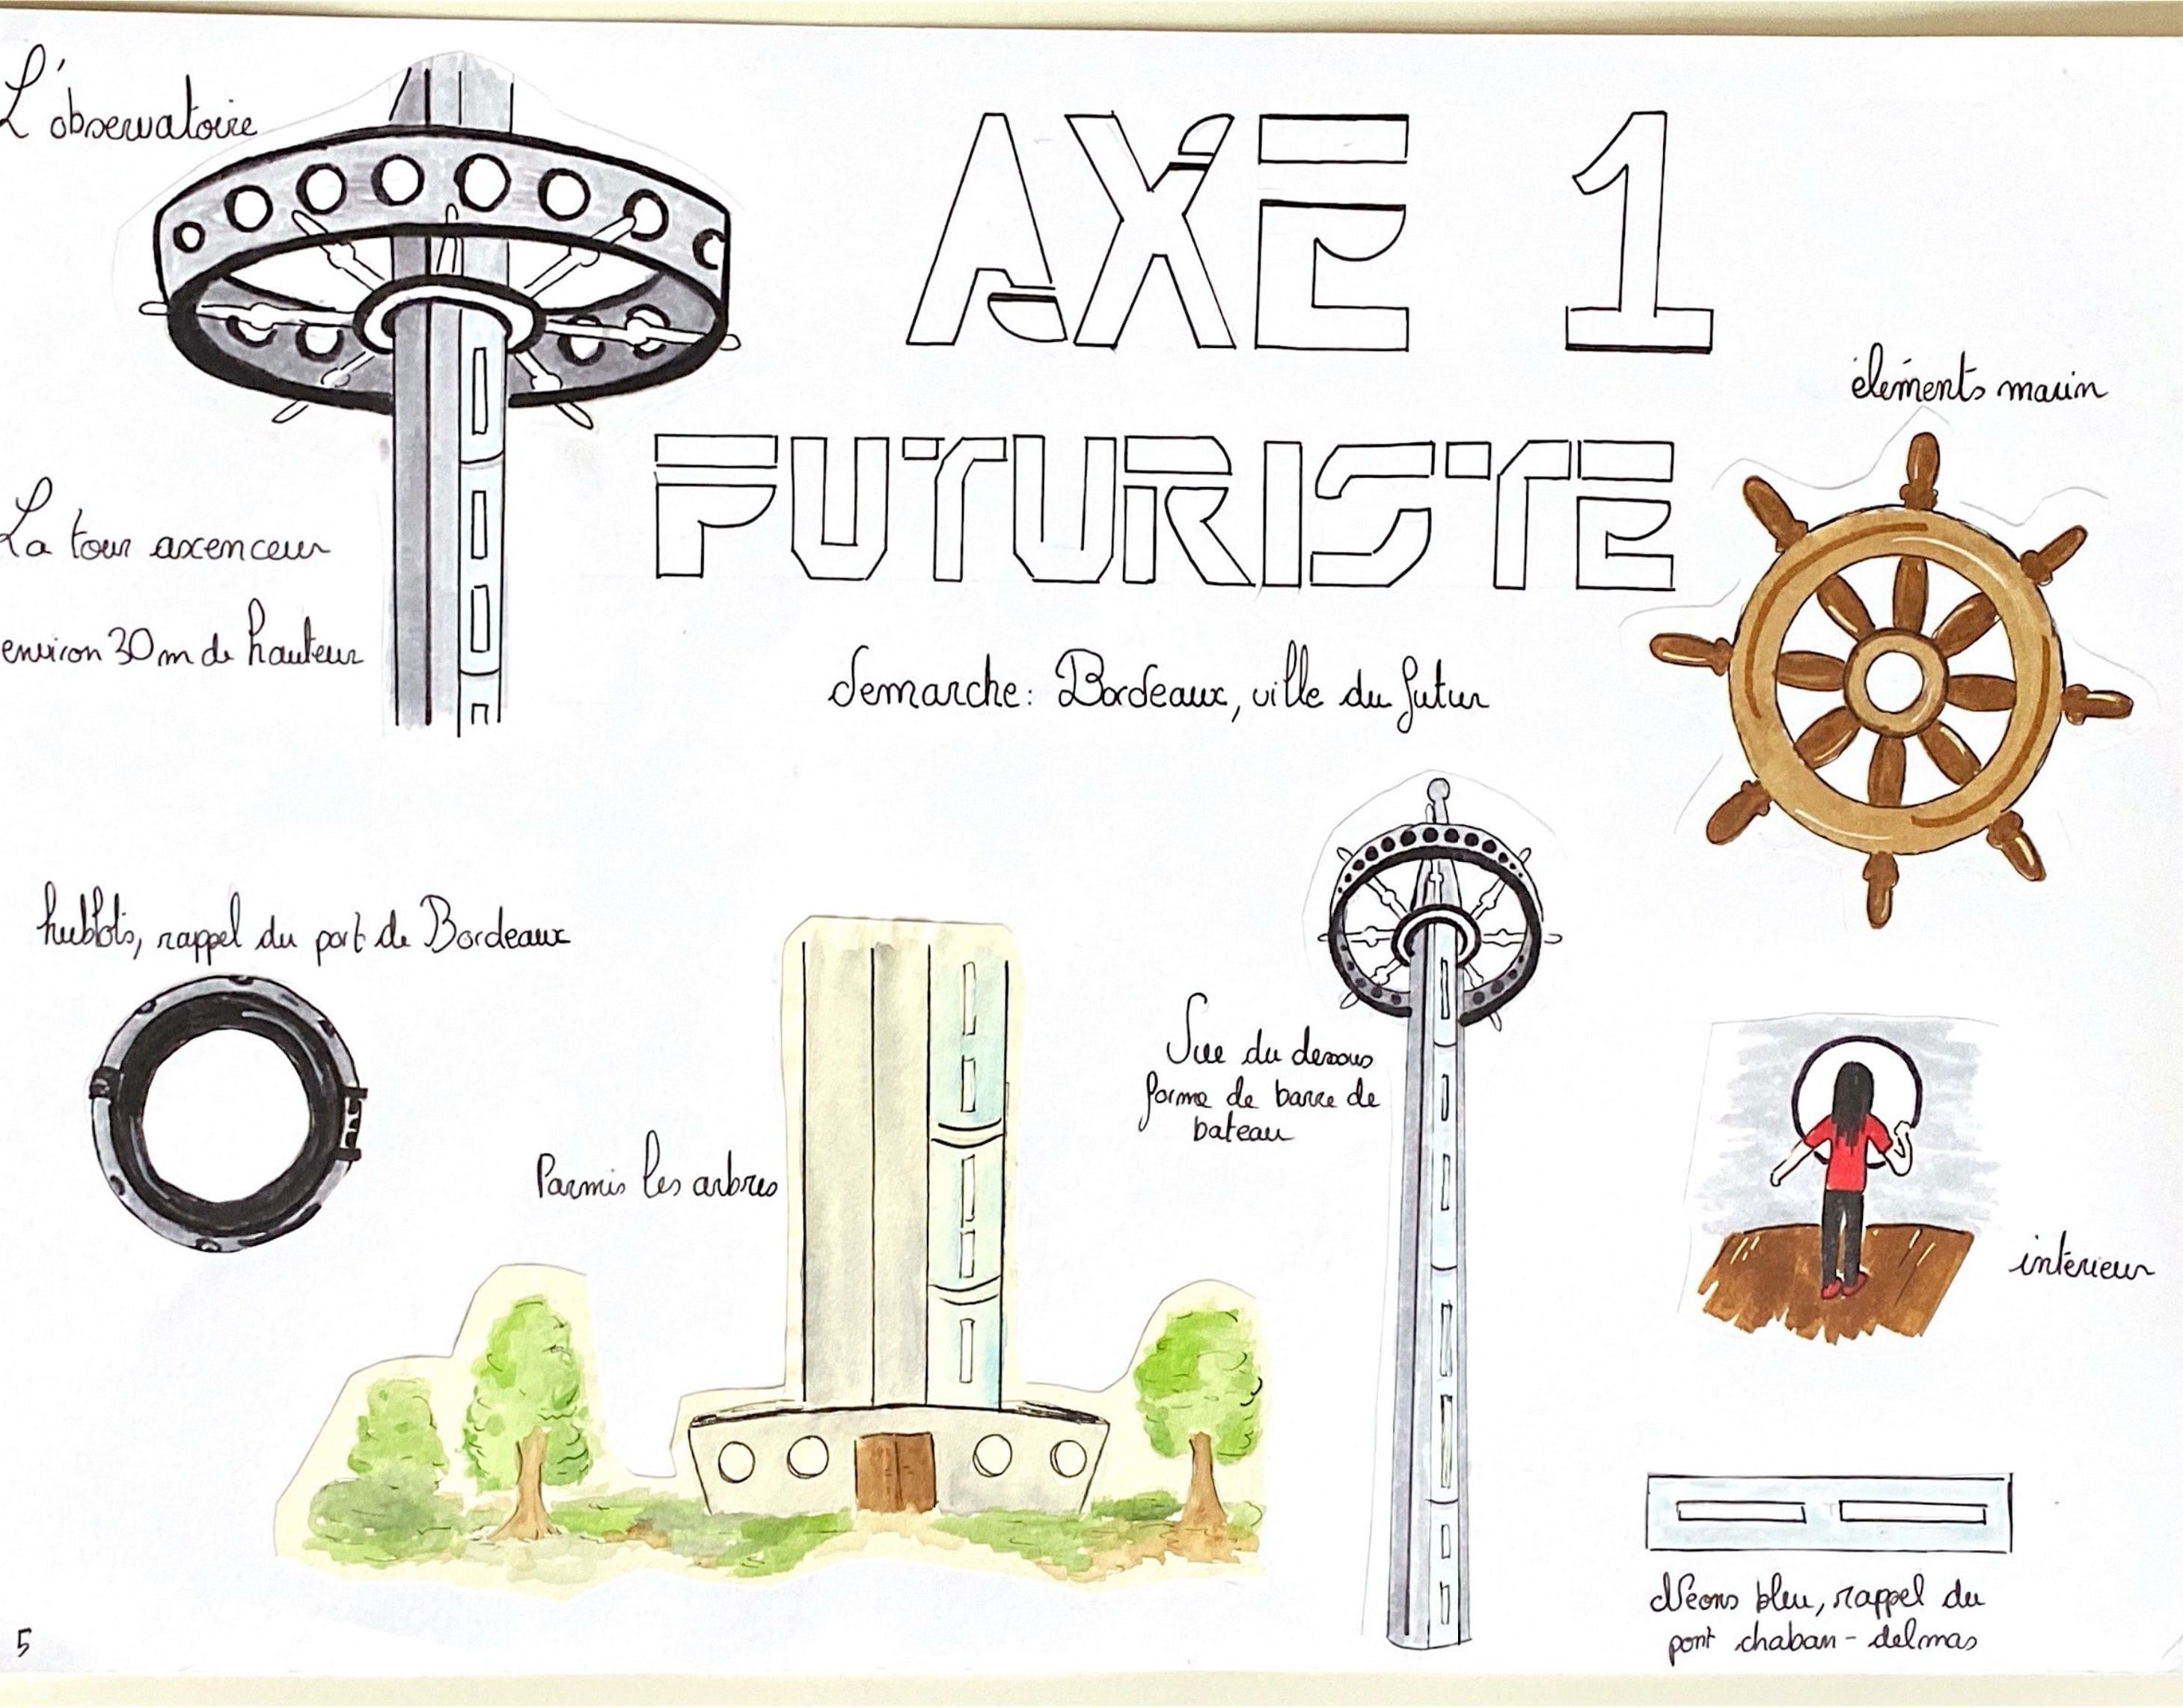 L'observatoire
AXE 1
éléments marin
FUTURISTE
La tour axenceur
environ 30m de hauteur
demarche: Bordeaux, ville du futur
hublots, rappel du port de Bordeaux
Vue du dessous
forme de barre de
bateau
Parmis les arbres
intérieur
Néons bleu, rappel du
pont chaban-delmas
5